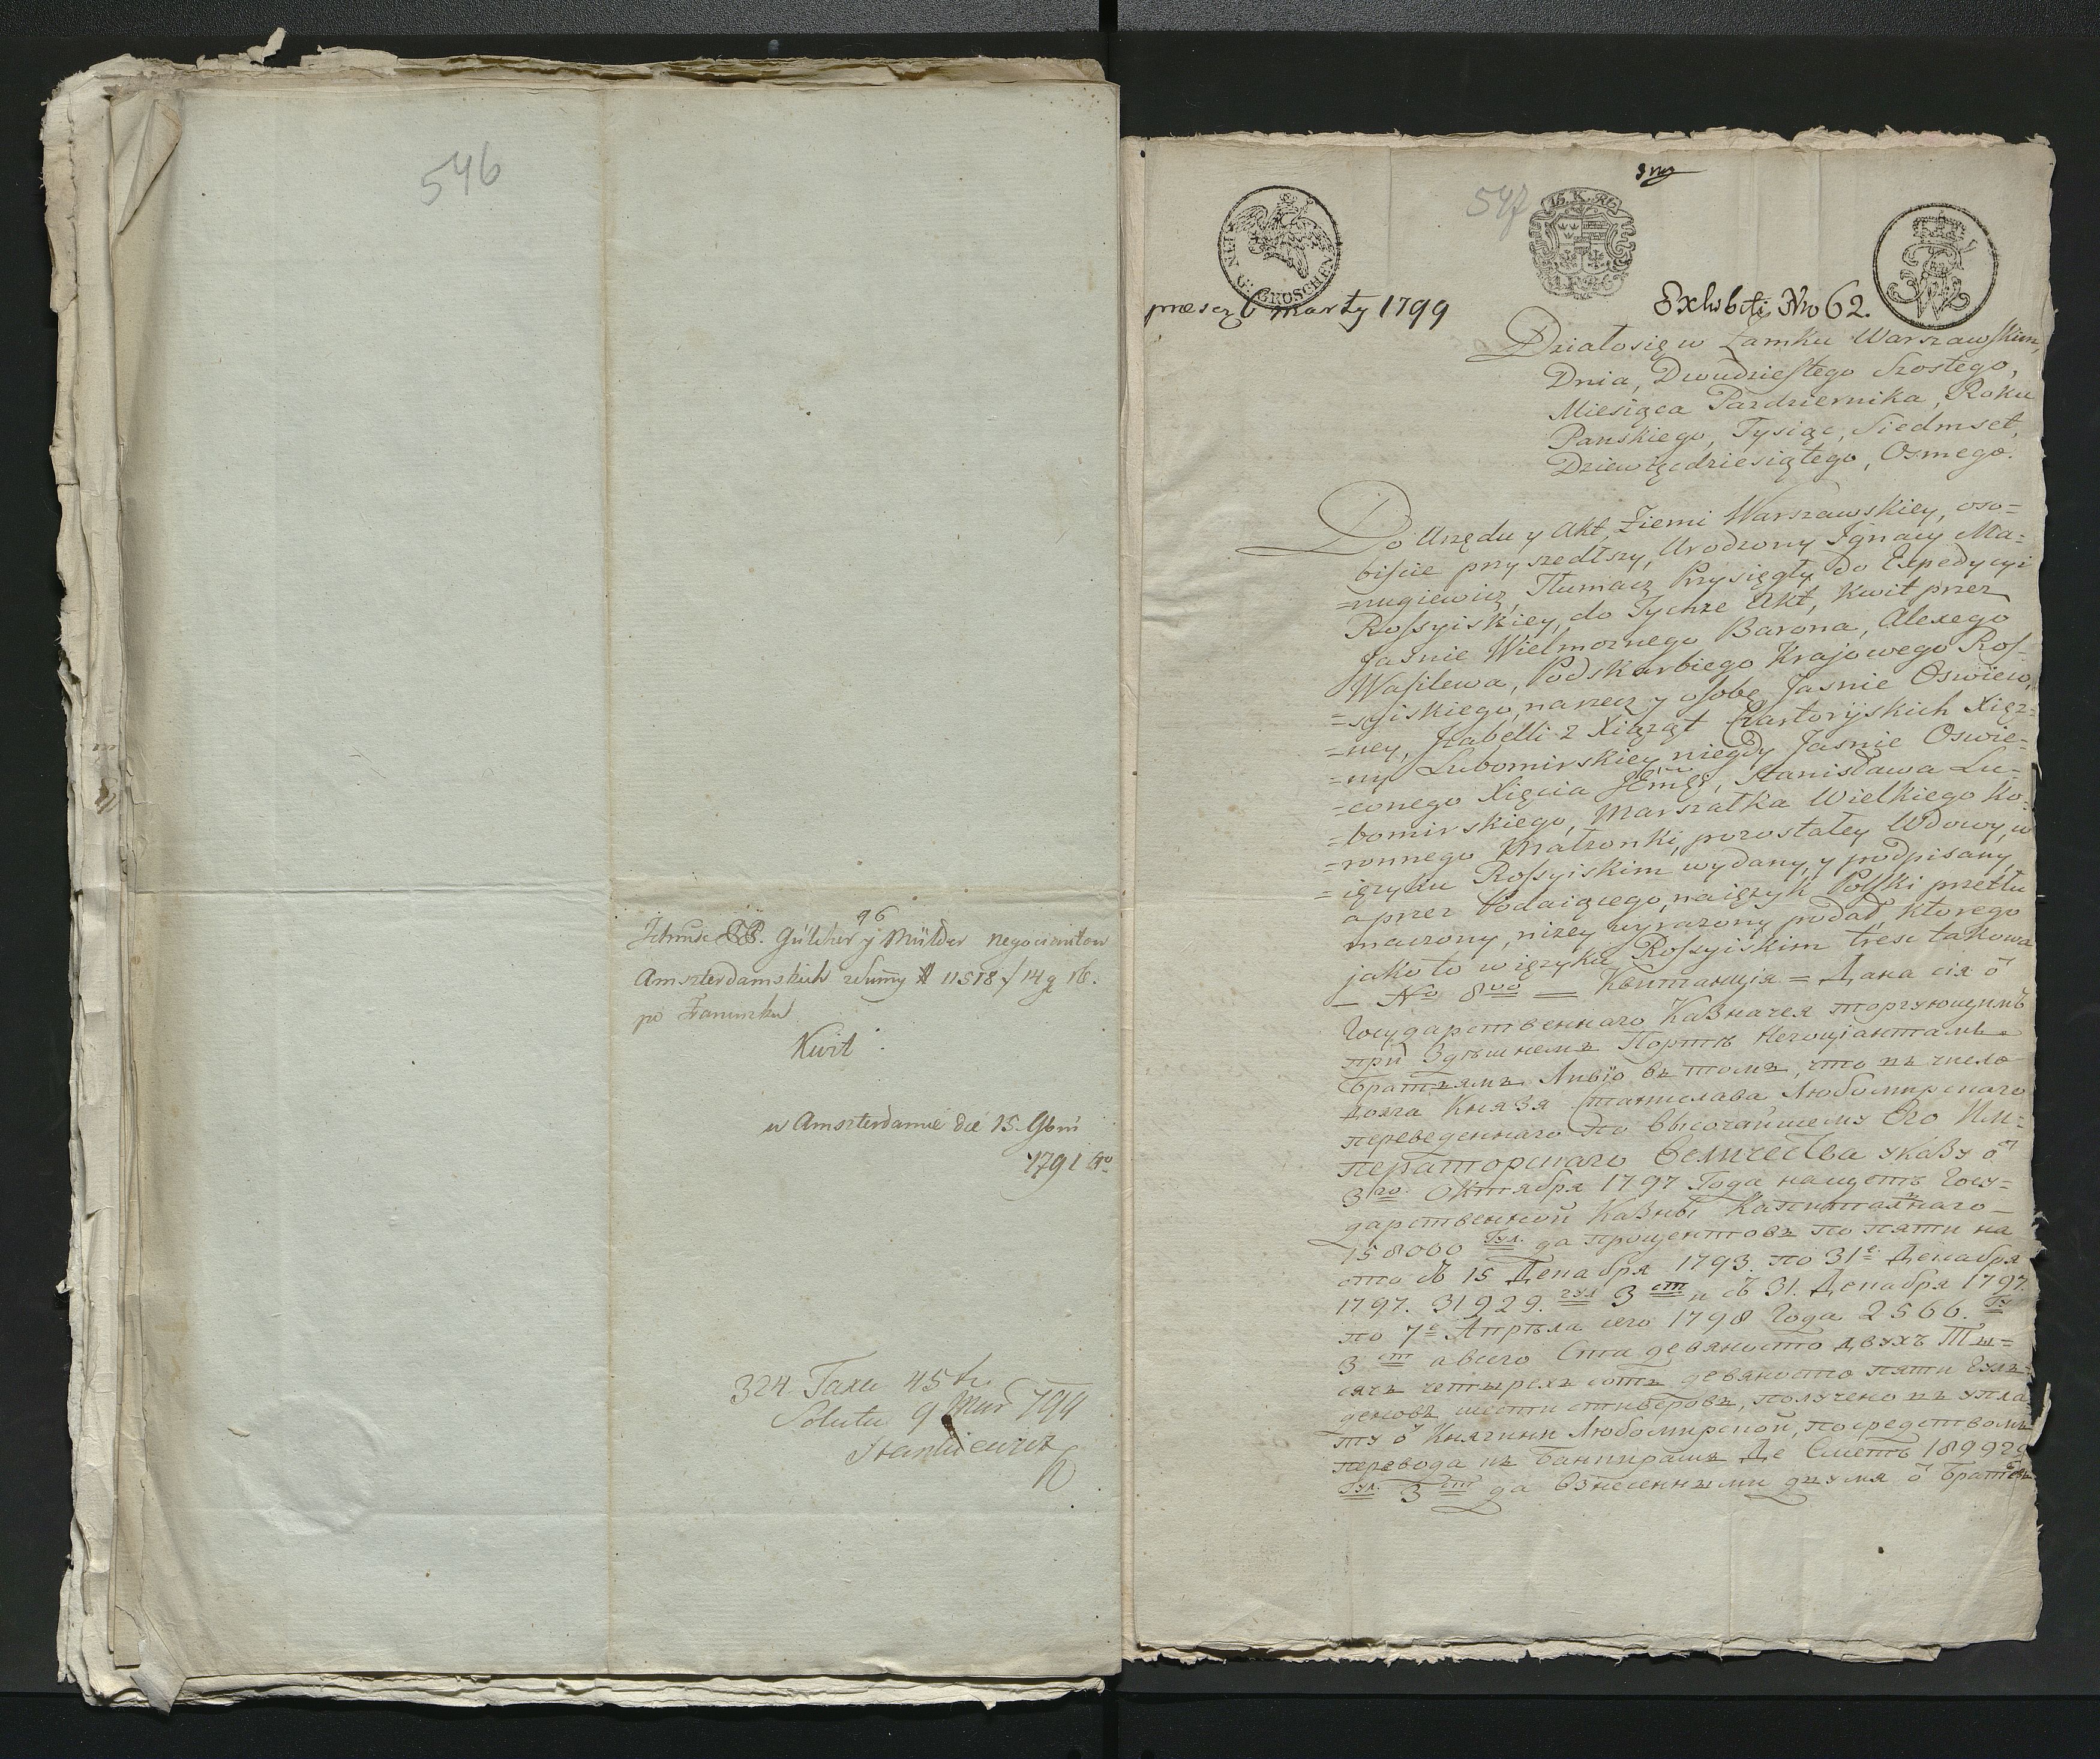 546
96
Gülcher y Mülder negociantow
Amszterdamskich # 11518 / 14 g 16.
po Francuzku
Kwit
w Amszterdamie die 15. 9bris
1791 Ao
324 Taxa 45 tr.
Soluta 9 Mar 799
Stankiewicz
547
15. K. R.
NEUN G: GROSCHEN
praes 6 marty 1799
Exhibiti No 62.
Działo się w Zamku Warszawskim,
Dnia, Dwudziestego Szostego,
Miesiąca Pazdziernika, Roku
Panskiego, Tysiąc, Siedmset,
Dziewięćdziesiątego, Osmego.
Do Urzędu y Akt, Ziemi Warszawskiey, oso-
biście przyszedłszy, Urodzony Ignacy Ma-
=nugiewicz, Tłumacz Przysięgły do Expedycyi
Rossyiskiey, do Tychże Akt, Kwit przez
Jaśnie Wielmoznego Barona, Alexego
Wasilewa, Podskarbiego Krajowego Ros-
=syiskiego, na rzecz y osobę Jasnie Oswieco-
=ney, Izabelli z Xiążąt Czartoryskich Xięz-
=ny Lubomirskiey, niegdy Jasnie Oswie-
=conego Xięcia Jmci, Stanisława Lu-
=bomirskiego, Marszałka Wielkiego Ko-
=ronnego Małzonki, pozostałey Wdowy, w
=ięzyku Rossyiskim wydany, y podpisany,
a przez Podaiącego, na ięzyk Polski przetłu
maczony, nizey wyrazony podał, ktorego
jako to w ięzyku Rossyiskim treść takowa
— No 8vo = Квитанція = Дана сія ѿ
Государственнаго Казначея торгующимъ
при Здѣшнемъ Портѣ Негоціантамъ
Братьямъ Ливіо въ томъ, что въ число
долга Князя Станислава Любомирскаго
переведеннаго по Высочайшему Его Им-
ператорскаго Величества указу ѿ
3го Октября 1797 Года на щетъ Госу-
дарственной Казны Капитальнаго
158000 Гул. да процентовъ по пяти на
сто съ 15 Декабря 1793. по 31е Декабря
1797. 31929. гул 3 ст и съ 31. Декабря 1797.
по 7е Апрѣля сего 1798 Года 2566. Гу
3 ст а всего Ста девяносто двухъ Ты-
сячь четырехъ сотъ девяносто пяти Гуль-
деновъ шести стиверовъ, получено въ упла
ту ѿ Княгини Любомирской, посредствомъ
перевода къ Банкирамъ Де Сметъ 189929
Гул. 3 ст да взнесенными ѿ Братьевъ